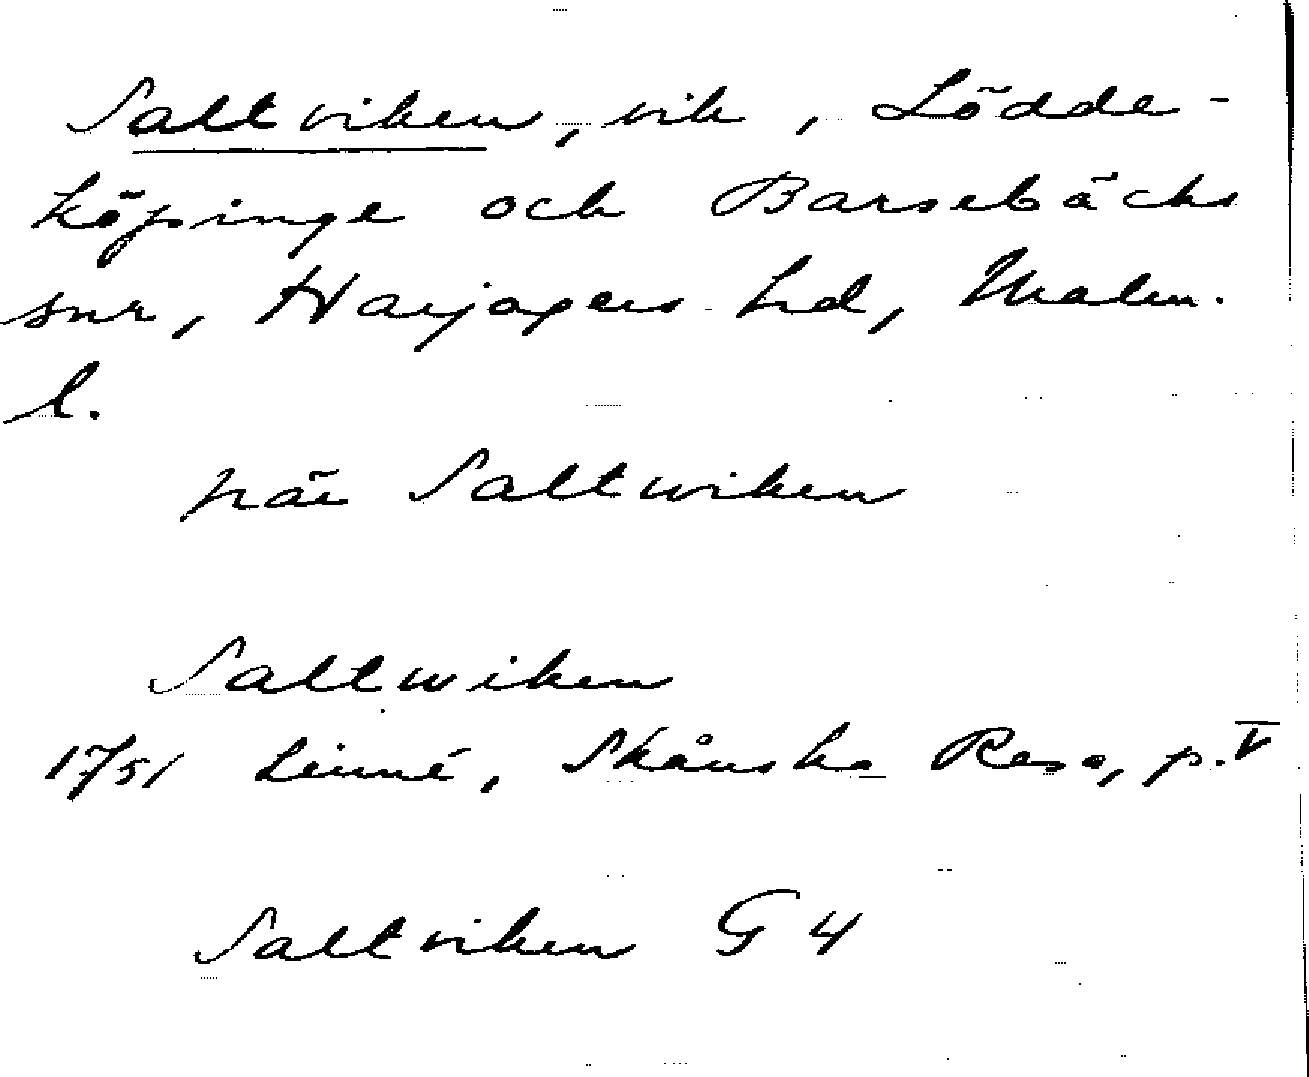 Saltviken, vik, Lödde-
köpinge och Barsebäcks
snr, Harjagers hd, Malm.
l.
när Saltwiken
Saltwiken
1751 Linné, Skånska Resa, p. V
Saltviken G 4